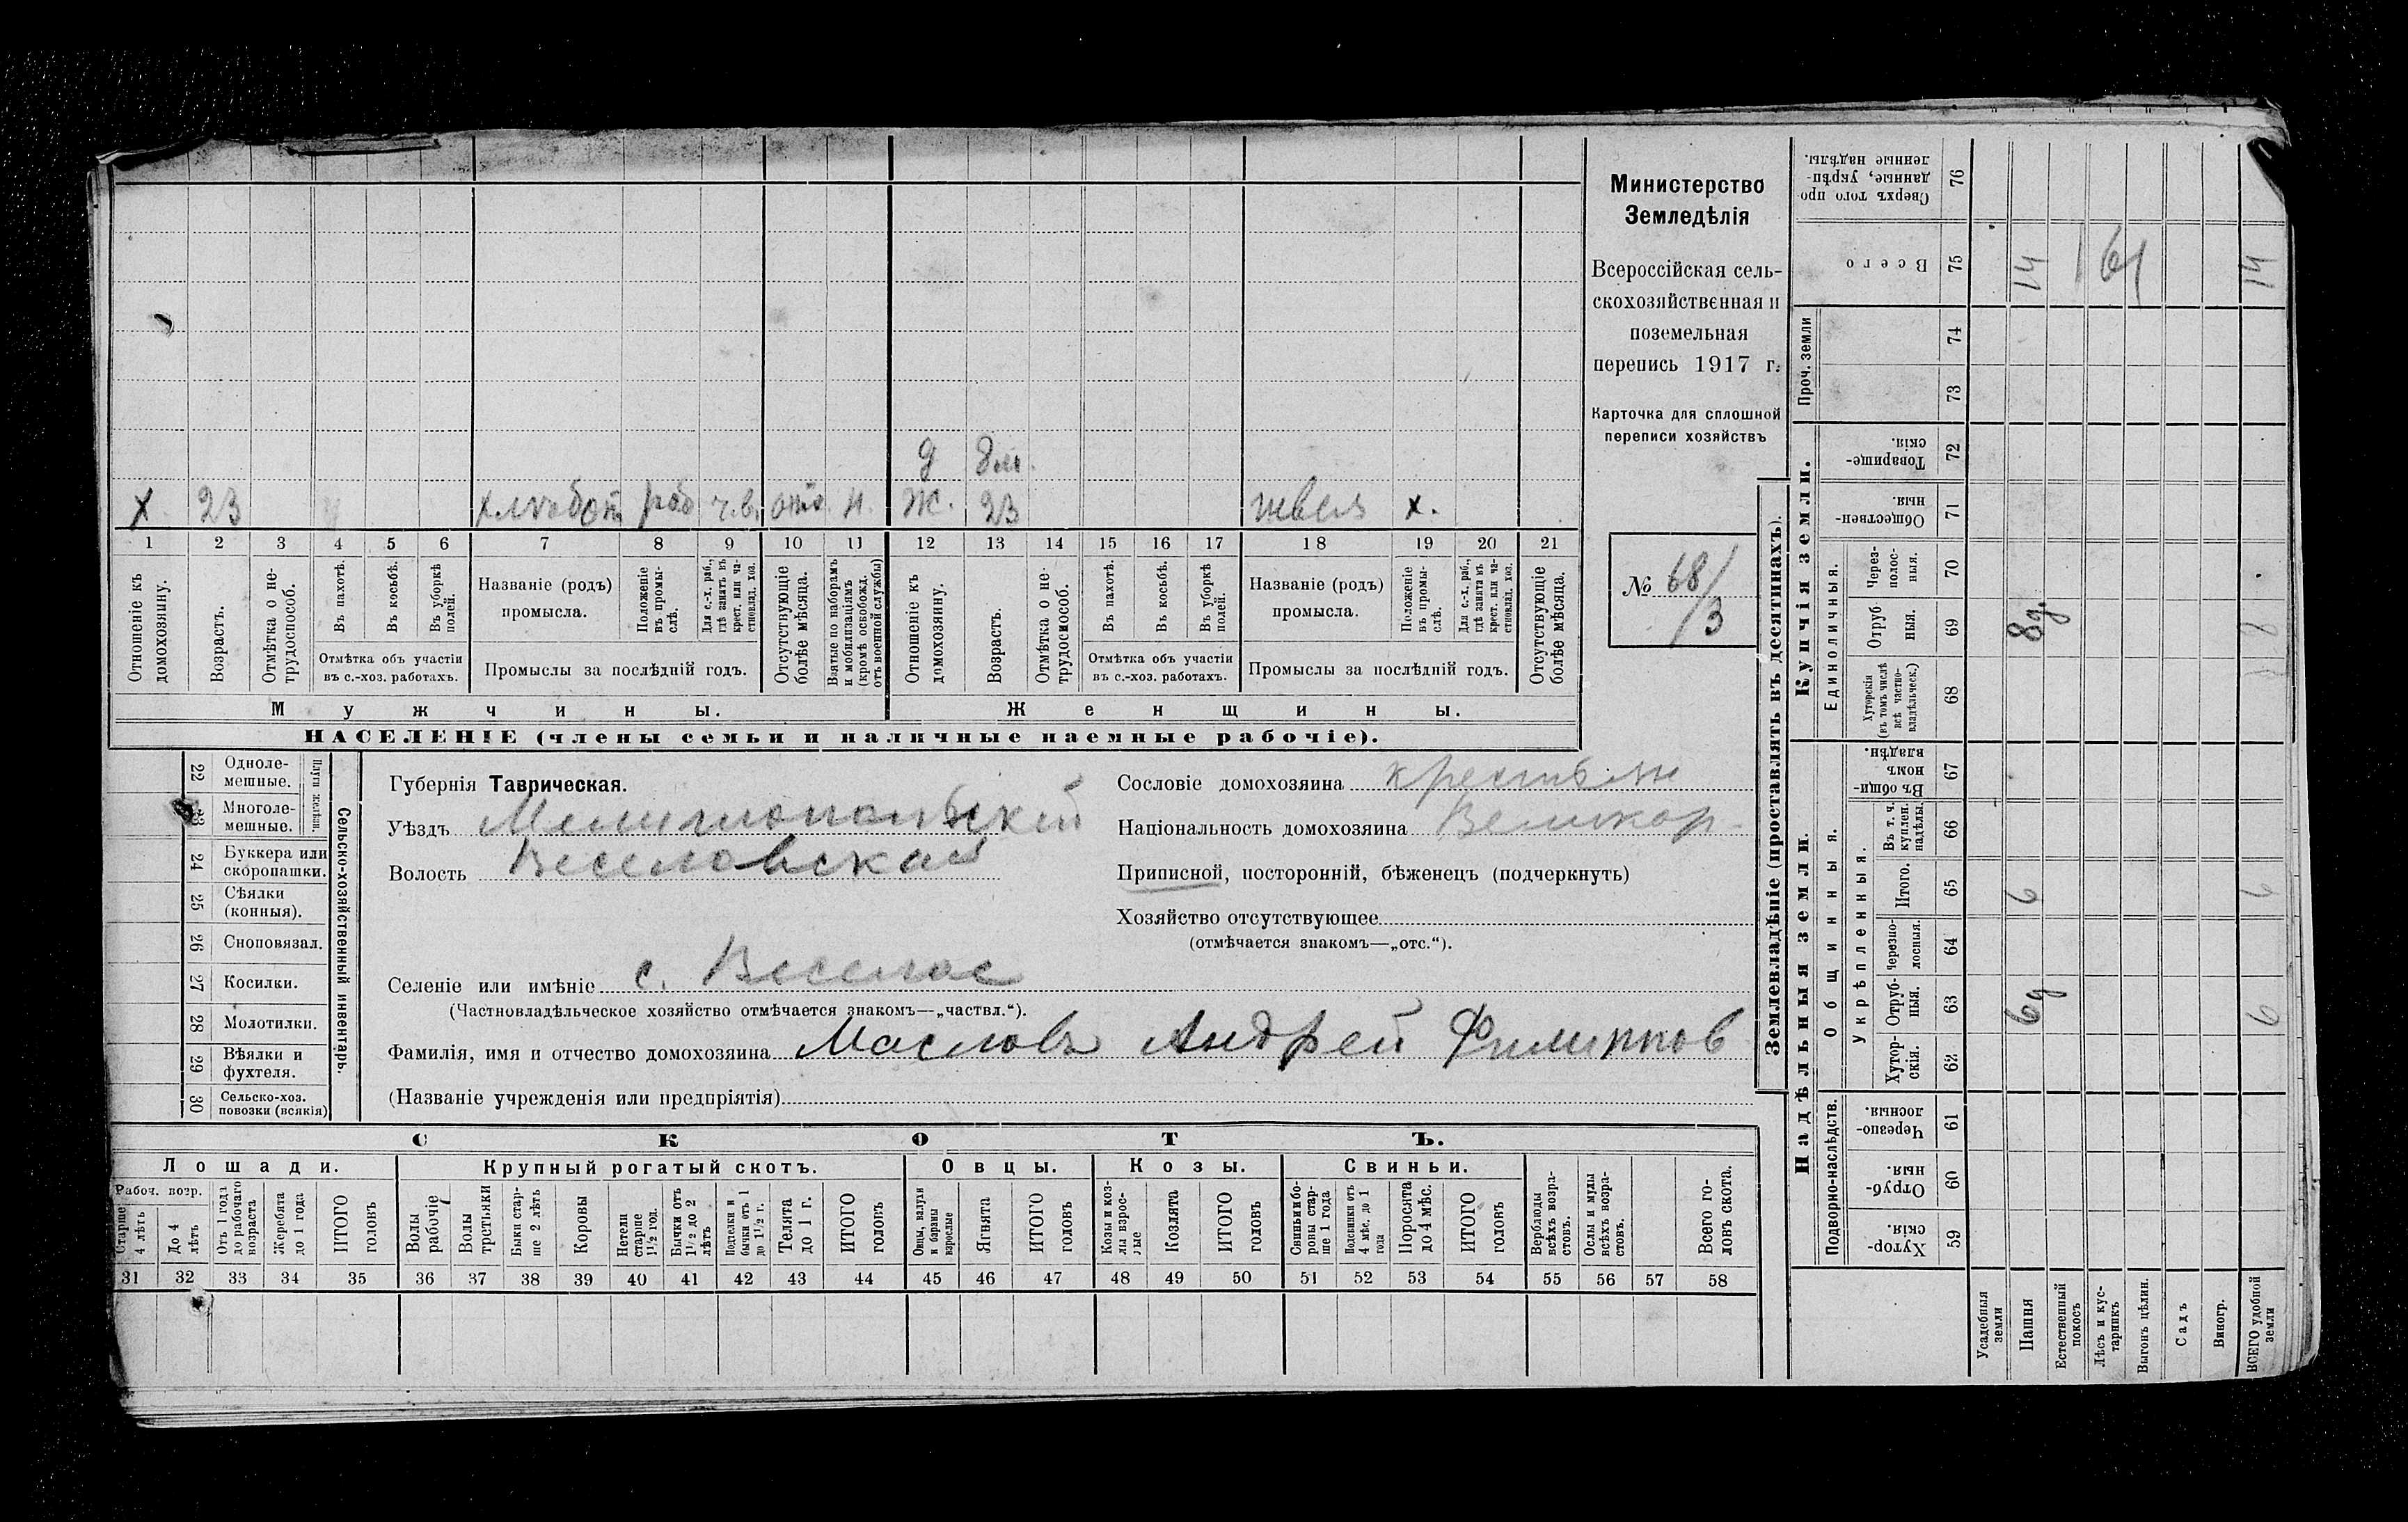 Министерство
Земледѣлія
Всероссійская сель-
скохозяйственная и
поземельная
перепись 1917 г.
Карточка для сплошной
переписи хозяйствъ
№ 68/3
д 8 м.
х 23 хлѣбоп. раб ч.в. отс. н. Ж. 23 швея х.
1 2 3 4 5 6 7 8 9 10 11 12 13 14 15 16 17 18 19 20 21
Отношеніе къ домохозяину.
Возрастъ.
Отмѣтка о не-трудоспособ.
Въ пахотѣ.
Въ косьбѣ.
Въ уборкѣ полей.
Отмѣтка объ участіи въ с.-хоз. работахъ.
Названіе (родъ) промысла.
Положеніе въ промы-слѣ.
Для с.-х. раб., гдѣ занятъ въ крест. или ча-стновлад. хоз.
Промыслы за послѣдній годъ.
Отсутствующіе болѣе мѣсяца.
Взятые по наборамъ и мобилизаціямъ (кромѣ освобожд. отъ военной службы)
Отношеніе къ домохозяину.
Возрастъ.
Отмѣтка о не-трудоспособ.
Въ пахотѣ.
Въ косьбѣ.
Въ уборкѣ полей.
Отмѣтка объ участіи въ с.-хоз. работахъ.
Названіе (родъ) промысла.
Положеніе въ промы-слѣ.
Для с.-х. раб., гдѣ занята въ крест. или ча-стновлад. хоз.
Промыслы за послѣдній годъ.
Отсутствующіе болѣе мѣсяца.
Мужчины. Женщины.
НАСЕЛЕНІЕ (члены семьи и наличные наемные рабочіе).
22 Одноле-мешные.
23 Многоле-мешные.
Плуги желѣзн.
24 Буккера или скоропашки.
25 Сѣялки (конныя).
26 Сноповязал.
27 Косилки.
28 Молотилки.
29 Вѣялки и фухтеля.
30 Сельско-хоз. повозки (всякія)
Сельско-хозяйственный инвентарь.
Губернія Таврическая.
Уѣздъ Мелитопольскій
Волость Веселовская
Селеніе или имѣніе с. Веселое
(Частновладѣльческое хозяйство отмѣчается знакомъ—„частвл.“).
Фамилія, имя и отчество домохозяина Масловъ Андрей Филиппов
(Названіе учрежденія или предпріятія)
Сословіе домохозяина крестьян
Національность домохозяина Великор.
Приписной, посторонній, бѣженецъ (подчеркнуть)
Хозяйство отсутствующее
(отмѣчается знакомъ—„отс.“).
СКОТЪ.
Лошади. Крупный рогатый скотъ. Овцы. Козы. Свиньи.
Рабоч. возр.
Старше 4 лѣтъ
До 4 лѣтъ
Отъ 1 года до рабочаго возраста
Жеребята до 1 года
ИТОГО головъ
Волы рабочіе
Волы третьяки
Быки стар-ше 2 лѣтъ
Коровы
Нетели старше 1½ год.
Бычки отъ 1½ до 2 лѣтъ
Подтелки и бычки отъ 1 до 1½ г.
Телята до 1 г.
ИТОГО головъ
Овцы, валухи и бараны взрослые
Ягнята
ИТОГО головъ
Козы и коз-лы взрос-лые
Козлята
ИТОГО головъ
Свиньи и бо-ровы стар-ше 1 года
Подсвинки отъ 4 мѣс. до 1 года
Поросята до 4 мѣс.
ИТОГО головъ
Верблюды всѣхъ возра-стовъ.
Ослы и мулы всѣхъ возра-стовъ.
Всего го-ловъ скота.
31 32 33 34 35 36 37 38 39 40 41 42 43 44 45 46 47 48 49 50 51 52 53 54 55 56 57 58
Землевладѣніе (проставлять въ десятинахъ).
Надѣльныя земли. Купчія земли. Проч. земли
Подворно-наслѣдств.
Общинныя.
Укрѣпленныя.
Единоличныя.
Хутор-скія. 59
Отруб-ныя. 60
Черезпо-лосныя. 61
Хутор-скія. 62
Отруб-ныя. 63
Черезпо-лосныя. 64
Итого. 65
Въ т. ч. куплен. надѣлы. 66
Въ общи-номъ владѣн. 67
Хуторскія (въ томъ числѣ всѣ частно-владѣльческ.) 68
Отруб-ныя. 69
Через-полос-ныя. 70
Обществен-ныя. 71
Товарище-скія. 72
73
74
Всего 75
Сверхъ того про-данные, укрѣп-ленные надѣлы. 76
Усадебныя земли
Пашня 6д 6 8д. 14
Естественный покосъ
Лѣсъ и кус-тарникъ
Выгонъ цѣлин.
Садъ
Виногр.
ВСЕГО удобной земли 6 6 8 14